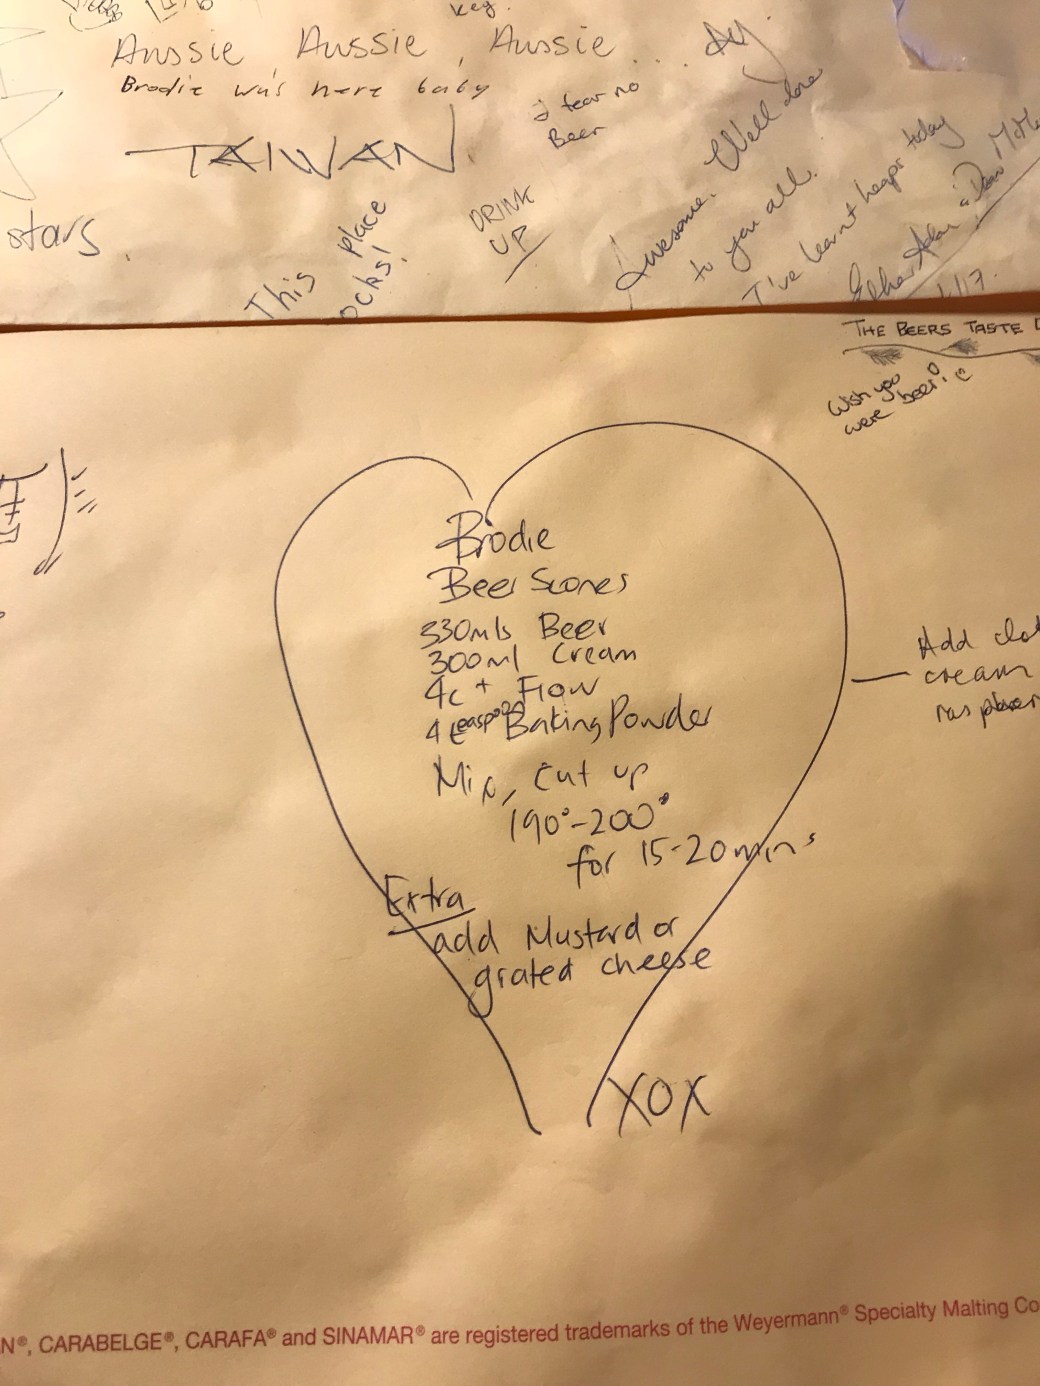 key.
Aussie, Aussie, Aussie....
Brodie was here baby
I fear no
Beer
TAIWAN
stars.
This place
ocks!
DRINK
UP
Awesome. Well done
to you all.
I've learnt heaps today
/17.
THE BEERS TASTE
Wish you
were beer!
Brodie
Beer Scones
330mls Beer
300ml Cream
4c + Flow
4 teaspoon Baking Powder
Mix, Cut up
190°-200°
for 15-20mins
Extra
add Mustard or
grated cheese
XOX
Add
cream
N®, CARABELGE®, CARAFA® and SINAMAR® are registered trademarks of the Weyermann® Specialty Malting Co